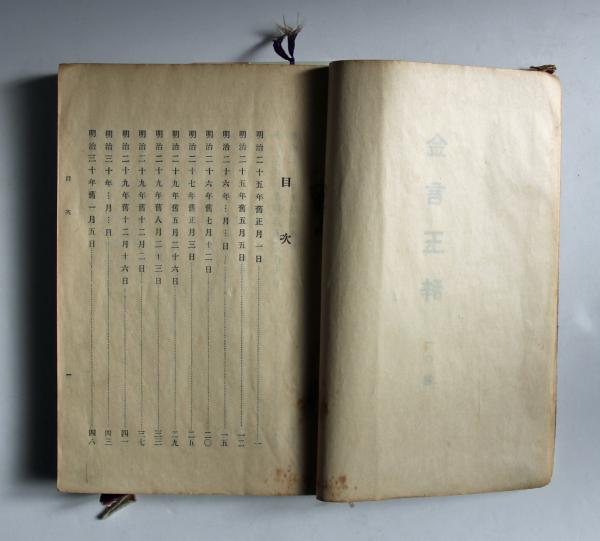 金言玉
目次
明治二十五年舊正月一日……一
明治二十五年舊五月五日……一二
明治二十六年…月三日……一五
明治二十六年舊七月十二日……二〇
明治二十七年舊正月三日……二五
明治二十九年舊五月二十六日……二九
明治二十九年舊八月二十三日……三三
明治二十九年舊十二月二日……三七
明治二十九年舊十二月十六日……四一
明治三十年…月…日……四三
明治三十年舊一月五日……四六
目次
一